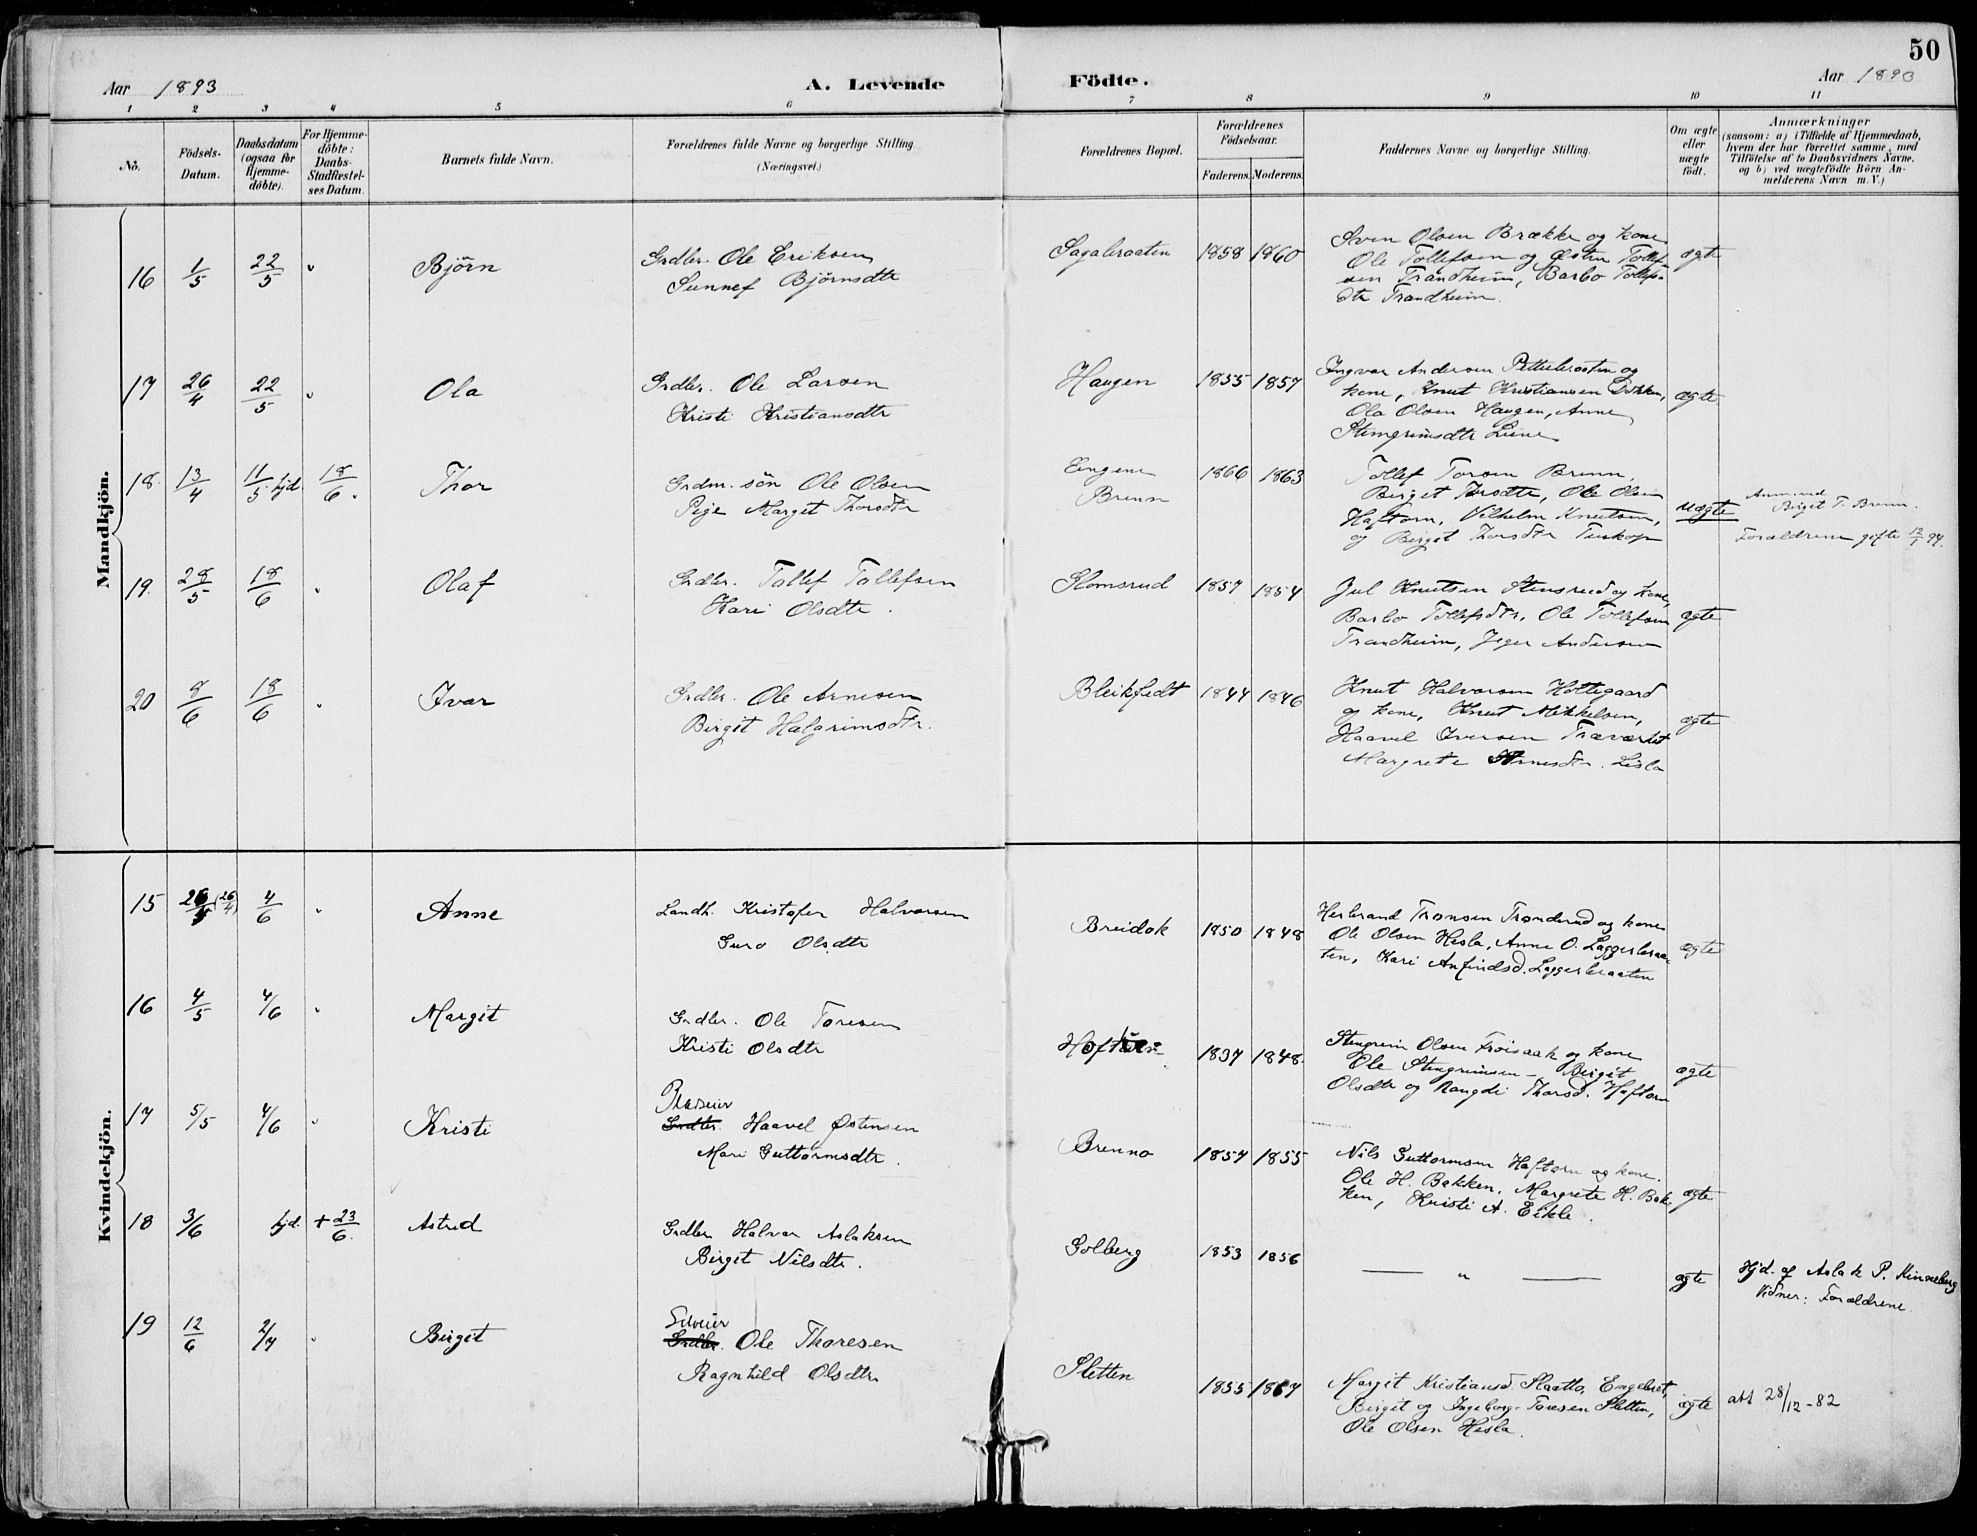 50
Aar 1893 A. Levende Födte. Aar 1893
1 2 3 4 5 6 7 8 9 10 11
No.
Födsels-
Datum.
Daabsdatum
(ogsaa for
Hjemme-
döbte).
For Hjemme-
döbte:
Daabs-
Stadfæstel-
ses Datum.
Barnets fulde Navn.
Forældrenes fulde Navne og borgerlige Stilling.
(Næringsvei.)
Forældrenes Bopæl.
Forældrenes
Födselsaar.
Faderens. Moderens.
Faddernes Navne og borgerlige Stilling.
Om ægte
eller
uægte
födt.
Anmærkninger
(saasom: a) i Tilfælde af Hjemmedaab,
hvem der har forrettet samme, med
Tilföielse af to Daabsvidners Navne.
og b) ved uægtefödte Börn An-
melderens Navn m. V.)
Mandkjön.
16 1/5 22/5 " Björn
Grdbr. Ole Eriksen
Sunnef Björnsdtr
Sagabraaten 1858 1860
Sven Olsen Brække og kone
Ole Tollefsen og Østen Tollef
sen Trandheim, Barbo Tollefs-
dtr Trandheim.
ægte
17 26/4 22/5 " Ola
Grdbr. Ole Larsen
Kristi Kristiansdtr
Haugen 1855 1857
Ingvar Andersen Petterbraaten og
kone, Knut Kristiansen Dokken,
Ola Olsen Haugen, Anne
Stengrimsdtr
ægte
18. 13/4 11/5 hjd. 18/6. Thor
Grdm. sön Ole Olsen
Pige Marget Thorsdtr
Brenn
1866 1863
Tollef Torsen Brenn,
Birget Torsdtr, Ole Olsen
Haftorn, Vilhelm Knutsen,
og Birgit Thorsdtr
uægte
Birgit T. Brenn.
Forældrene gifte 12/1 94.
19. 28/5 18/6 " Olaf
Grdbr. Tollef Tollefsen
Kari Olsdtr.
Glomsrud 1857 1854
Jul Knutsen Stensrud og kone,
Barbo Tollefsdtr, Ole Tollefsen
Trandheim, Jeger Andersen
ægte
20 8/6 18/6 " Ivar
Grdbr. Ole Arnesen
Birgit Halgrimsdtr.
Bleikfedt 1844 1846
Knut Halvorsen Holtegaard
og kone, Knut Mikkelsen,
Haavel Iversen
Margrete Arnesdtr. Lisla
ægte
Kvindekjön.
15 26/5 (26/4) 4/6 " Anne
Landh. Kristofer Halvorsen
Guro Olsdtr
Breidok 1850 1848
Herbrand Tronsen Trønderud og kone
Ole Olsen Hesla, Anne O. Laggerbraa-
ten, Kari Anfindsd. Laggerbraaten
ægte
16 4/5 4/6 " Margit
Grdbr. Ole Toresen
Kristi Olsdtr
1837 1848.
Stengrim Olsen Froisaak og kone
Ole Stengrimsen — Birgit
Olsdtr og Rangdi Thorsd. Haftorn
ægte
17 5/5 4/6 " Kristi
Pladseier
Grdbr. Haavel Østensen
Mari Guttormsdtr.
Brenno 1857 1855
Nils Guttormsen Haftorn og kone.
Ole H. Bakken, Margrete H. Bak-
ken, Kristi A. Eikle.
ægte
18 3/6 hjd. + 23/6. Astrid
Grdbr Halvor Aslaksen
Birget Nilsdtr.
Golberg 1853 1856
— " —
ægte
Hjd. af Aslak P. Kinneberg
Vidner: Forældrene.
19 12/6 2/7 " Birget
Selveier
Grdbr. Ole Thoresen
Ragnhild Olsdtr
Sletten 1855 1867
Margit Kristiansd. Slaatto, Engebret,
Birget og Ingeborg Toresen Sletten,
Ole Olsen Hesla.
ægte
att 28/12-82